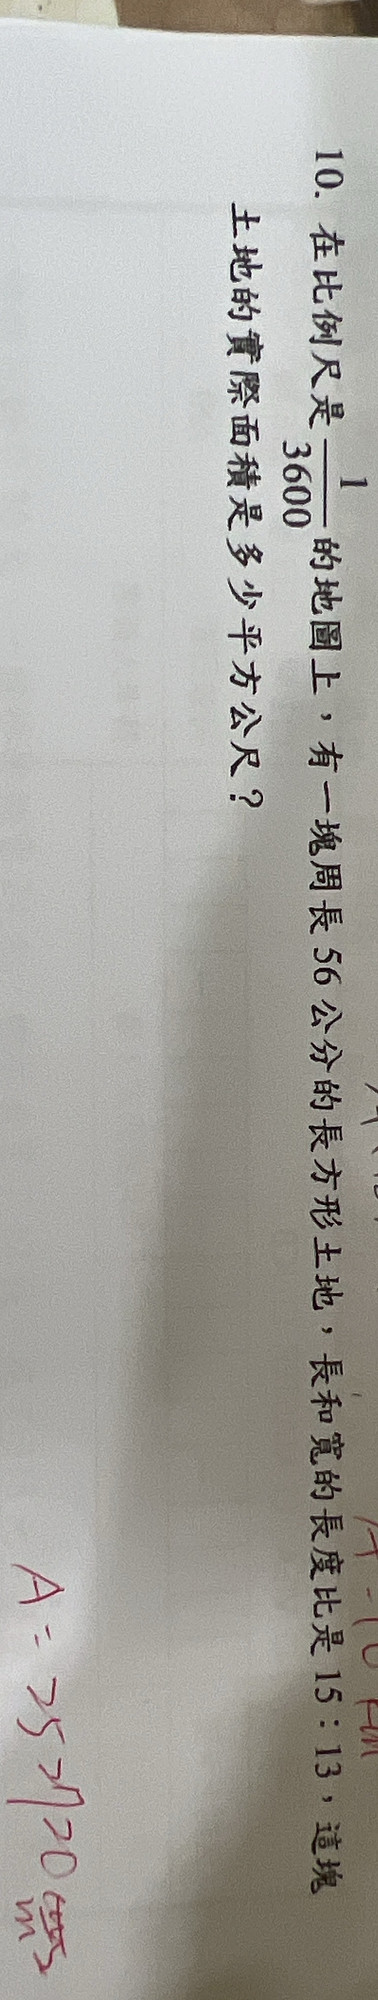 10. 在比例尺是 1/3600 的地圖上，有一塊周長 56 公分的長方形土地，長和寬的長度比是 15：13，這塊
土地的實際面積是多少平方公尺？
A = 252720